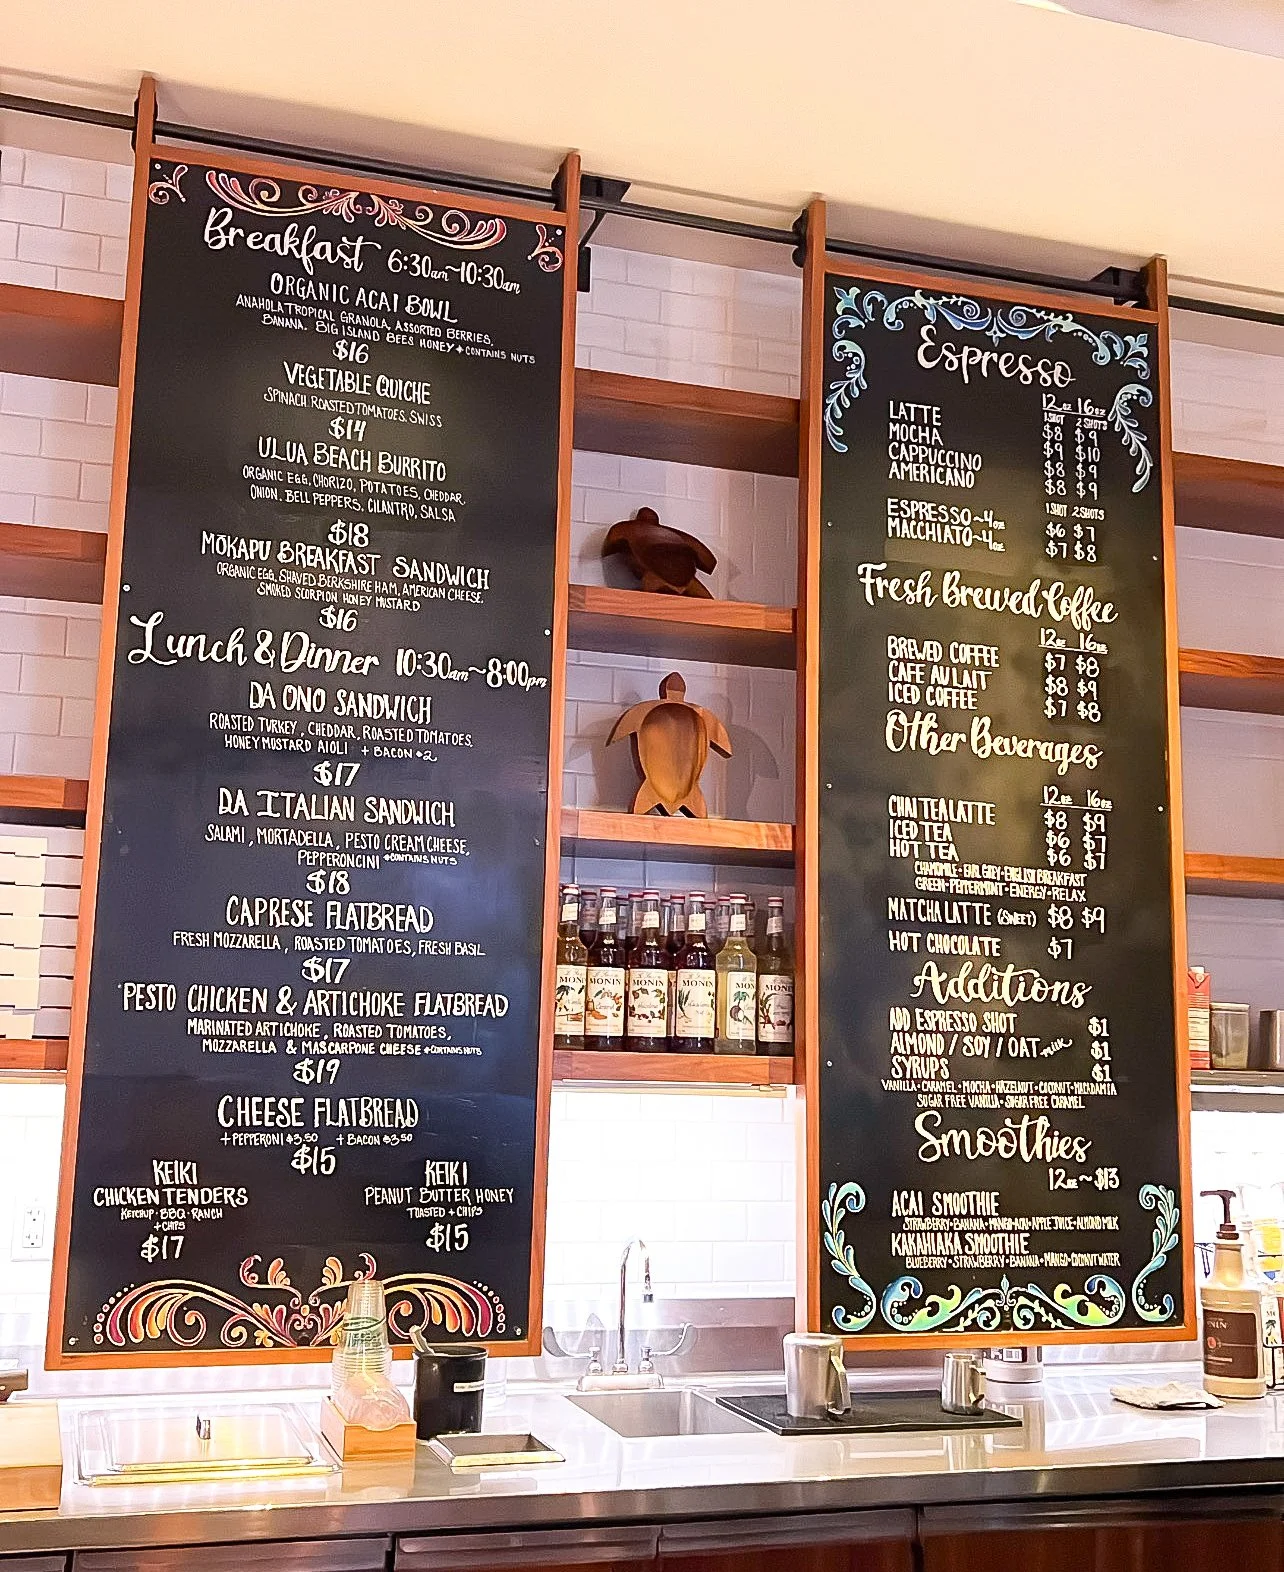 Breakfast 6:30am~10:30am
ORGANIC ACAI BOWL
ANAHOLA TROPICAL GRANOLA, ASSORTED BERRIES,
BANANA, BIG ISLAND BEES HONEY + CONTAINS NUTS
$16
VEGETABLE QUICHE
SPINACH, ROASTED TOMATOES, SWISS
$14
ULUA BEACH BURRITO
ORGANIC EGG, CHORIZO, POTATOES, CHEDDAR,
ONION, BELL PEPPERS, CILANTRO, SALSA
$18
MŌKAPU BREAKFAST SANDWICH
ORGANIC EGG, SHAVED BERKSHIRE HAM, AMERICAN CHEESE,
SMOKED SCORPION HONEY MUSTARD
$16
Lunch & Dinner 10:30am~8:00pm
DA ONO SANDWICH
ROASTED TURKEY, CHEDDAR, ROASTED TOMATOES,
HONEY MUSTARD AIOLI + BACON $2
$17
DA ITALIAN SANDWICH
SALAMI, MORTADELLA, PESTO CREAM CHEESE,
PEPPERONCINI +CONTAINS NUTS
$18
CAPRESE FLATBREAD
FRESH MOZZARELLA, ROASTED TOMATOES, FRESH BASIL
$17
PESTO CHICKEN & ARTICHOKE FLATBREAD
MARINATED ARTICHOKE, ROASTED TOMATOES,
MOZZARELLA & MASCARPONE CHEESE +CONTAINS NUTS
$19
CHEESE FLATBREAD
+ PEPPERONI $3.50 + BACON $3.50
$15
KEIKI
CHICKEN TENDERS
KETCHUP · BBQ · RANCH
+ CHIPS
$17
KEIKI
PEANUT BUTTER HONEY
TOASTED + CHIPS
$15
Espresso
12oz 16oz
1 SHOT 2 SHOTS
LATTE $8 $9
MOCHA $9 $10
CAPPUCCINO $8 $9
AMERICANO $8 $9
1 SHOT 2 SHOTS
ESPRESSO~4oz $6 $7
MACCHIATO~4oz $7 $8
Fresh Brewed Coffee
12oz 16oz
BREWED COFFEE $7 $8
CAFE AU LAIT $8 $9
ICED COFFEE $7 $8
Other Beverages
12oz 16oz
CHAI TEA LATTE $8 $9
ICED TEA $6 $7
HOT TEA $6 $7
CHAMOMILE · EARL GREY · ENGLISH BREAKFAST
GREEN · PEPPERMINT · ENERGY · RELAX
MATCHA LATTE (SWEET) $8 $9
HOT CHOCOLATE $7
Additions
ADD ESPRESSO SHOT $1
ALMOND / SOY / OAT milk $1
SYRUPS $1
VANILLA · CARAMEL · MOCHA · HAZELNUT · COCONUT · MACADAMIA
SUGAR FREE VANILLA · SUGAR FREE CARAMEL
Smoothies
12oz~$13
ACAI SMOOTHIE
STRAWBERRY · BANANA · MANGO · ACAI · APPLE JUICE · ALMOND MILK
KAKAHIAKA SMOOTHIE
BLUEBERRY · STRAWBERRY · BANANA · MANGO · COCONUT WATER
MONIN
MONIN
MONIN
MONIN
MONIN
MONIN